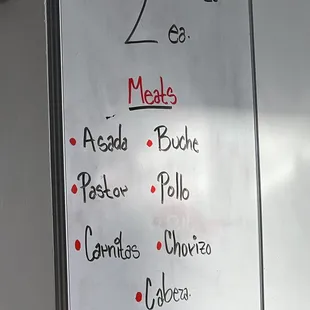 2
ea.
Meats
• Asada • Buche
• Pastor • Pollo
• Carnitas • Chorizo
• Cabeza.